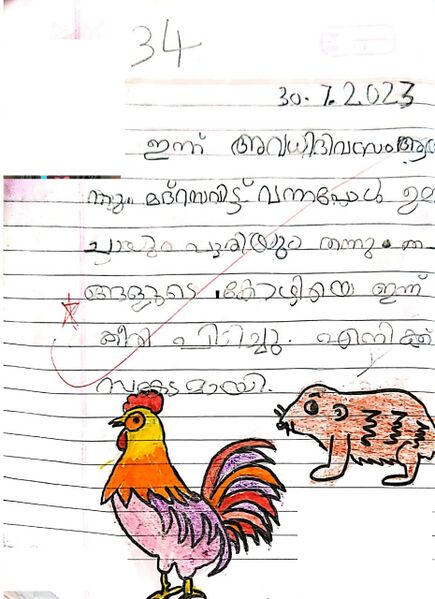 34
30.7.2023
ഇന്ന് അവധിദിവസം
മദ്റസവിട്ട് വന്നപ്പോൾ
പുരിയും തന്നു.
ങ്ങളുടെ കോഴിയെ ഇന്ന്
കീരി പിടിച്ചു. എനിക്ക്
സങ്കടമായി.